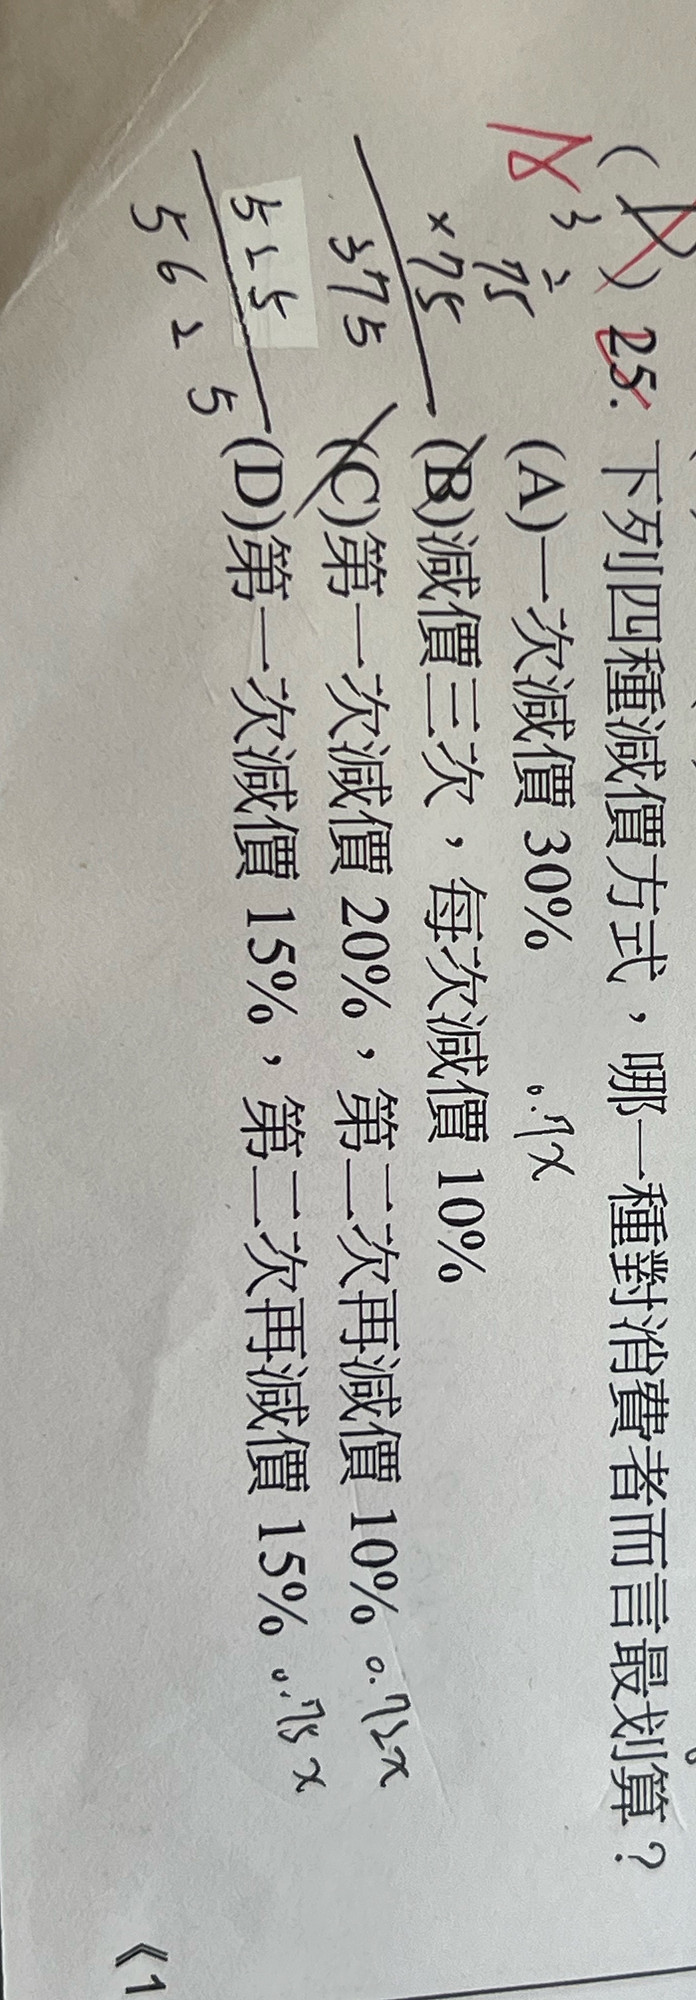 ( D ) 25. 下列四種減價方式，哪一種對消費者而言最划算？
A
(A)一次減價 30% 0.7x
(B)減價三次，每次減價 10%
(C)第一次減價 20%，第二次再減價 10% 0.72x
(D)第一次減價 15%，第二次再減價 15% 0.75x
3 2
75
×75
375
525
5625
《1